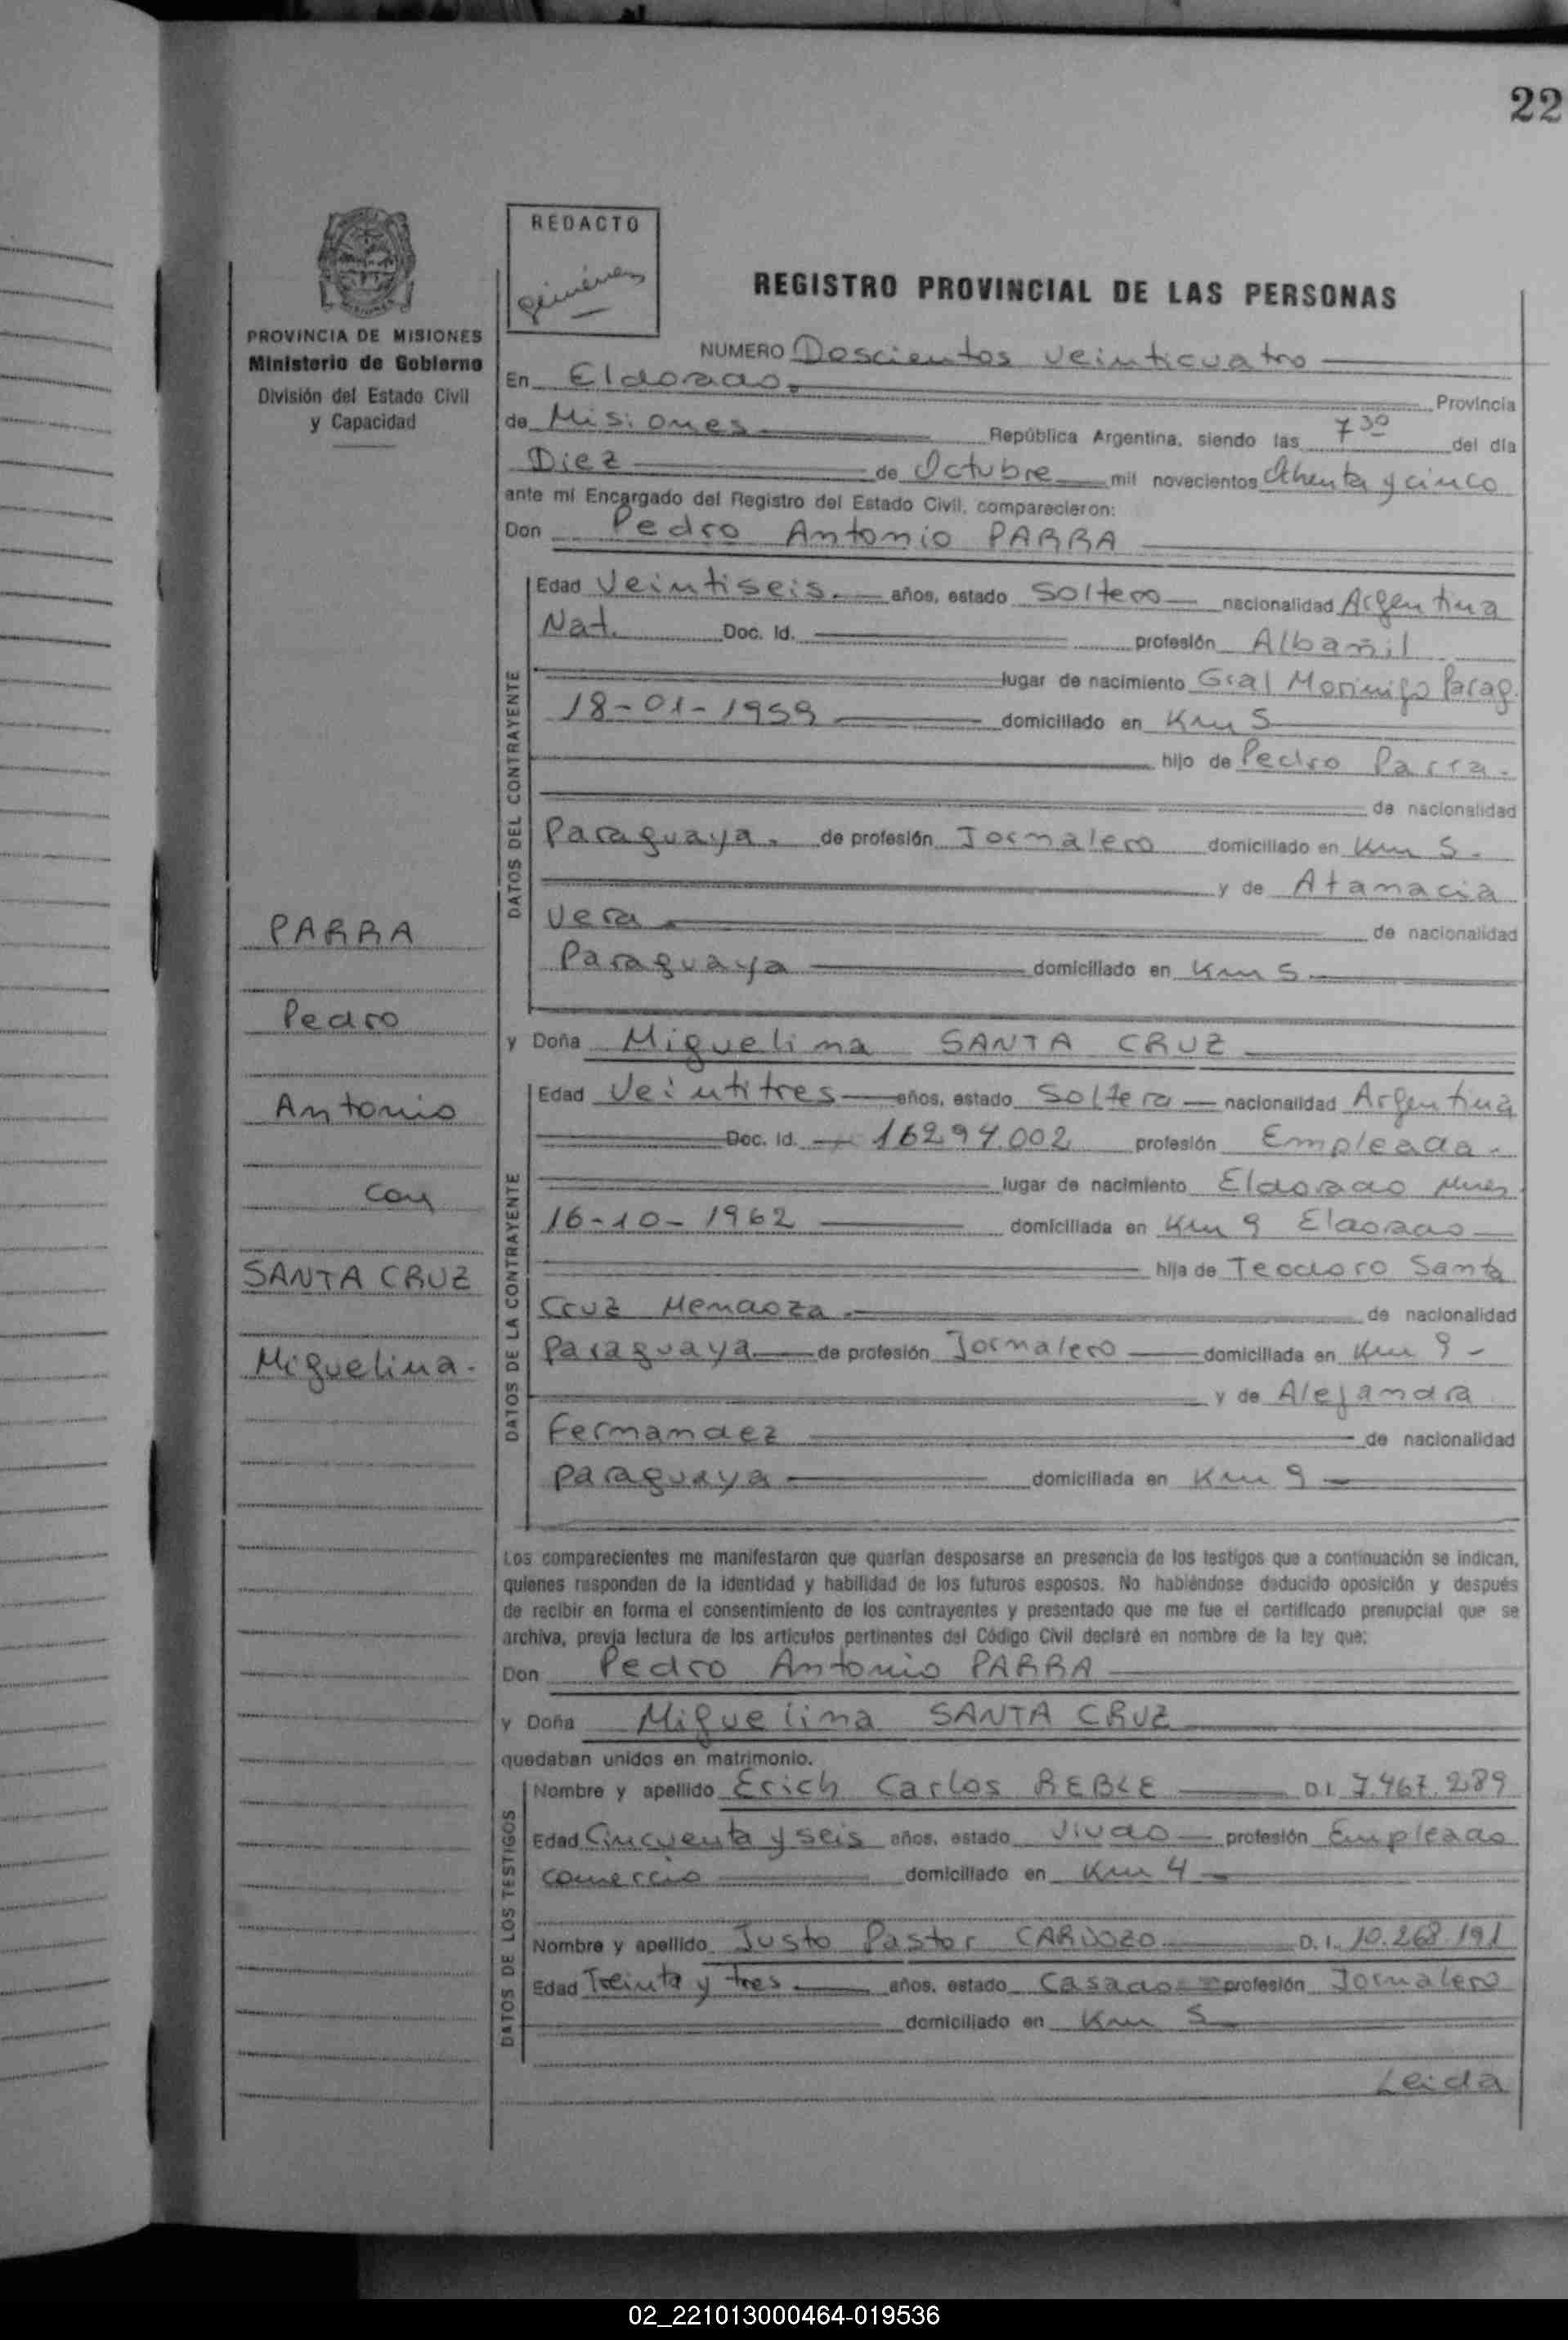 22
REDACTO
Giménez
PROVINCIA DE MISIONES
Ministerio de Gobierno
División del Estado Civil
y Capacidad
REGISTRO PROVINCIAL DE LAS PERSONAS
NUMERO Doscientos veinticuatro
En Eldorado. Provincia
de Misiones República Argentina, siendo las 7 30 del día
Diez de Octubre mil novecientos Ochenta y cinco
ante mí Encargado del Registro del Estado Civil, comparecieron:
Don Pedro Antonio PARRA
DATOS DEL CONTRAYENTE
Edad Veintiseis. años, estado Soltero nacionalidad Argentina
Nat. Doc. Id. profesión Albañil
lugar de nacimiento Gral Morinigo Parag.
18-01-1959 domiciliado en Km 5
hijo de Pedro Parra.
de nacionalidad
Paraguaya. de profesión Jornalero domiciliado en Km 5.
y de Atanacia
Vera de nacionalidad
Paraguaya domiciliado en Km 5
y Doña Miguelina SANTA CRUZ
DATOS DE LA CONTRAYENTE
Edad Veintitres años, estado Soltera nacionalidad Argentina
Doc. Id. 16294.002 profesión Empleada.
lugar de nacimiento Eldorado Mnes
16-10-1962 domiciliada en Km 9 Eldorado
hija de Teodoro Santa
Cruz Mendoza. de nacionalidad
Paraguaya de profesión Jornalero domiciliada en Km 9
y de Alejandra
Fernandez de nacionalidad
paraguaya domiciliada en Km 9
Los comparecientes me manifestaron que querían desposarse en presencia de los testigos que a continuación se indican,
quienes responden de la identidad y habilidad de los futuros esposos. No habiéndose deducido oposición y después
de recibir en forma el consentimiento de los contrayentes y presentado que me fue el certificado prenupcial que se
archiva, previa lectura de los artículos pertinentes del Código Civil declaré en nombre de la ley que:
Don Pedro Antonio PARRA
y Doña Miguelina SANTA CRUZ
quedaban unidos en matrimonio.
DATOS DE LOS TESTIGOS
Nombre y apellido Erich Carlos REBLE D.I. 7.467.289
Edad Cincuenta y seis años, estado Viudo profesión Empleado
comercio domiciliado en Km 4
Nombre y apellido Justo Pastor CARDOZO D.I. 10.268.191
Edad Treinta y tres años, estado Casado profesión Jornalero
domiciliado en Km 5
Leida
PARRA
Pedro
Antonio
con
SANTA CRUZ
Miguelina.
02_221013000464-019536